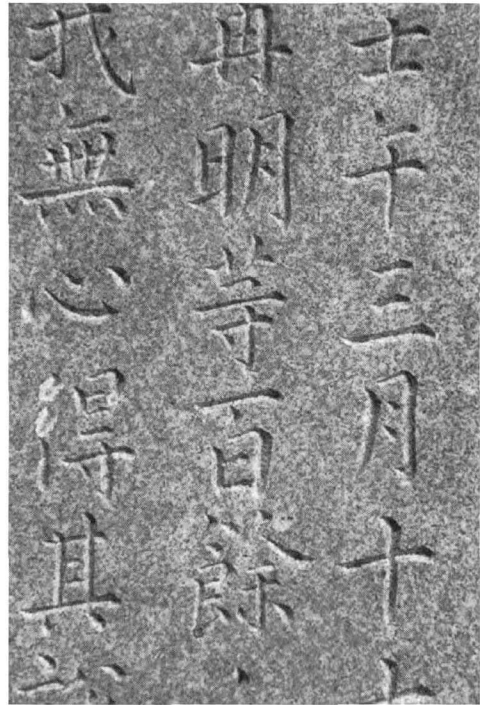 壬午三月十
冉明等百餘
我無心得其